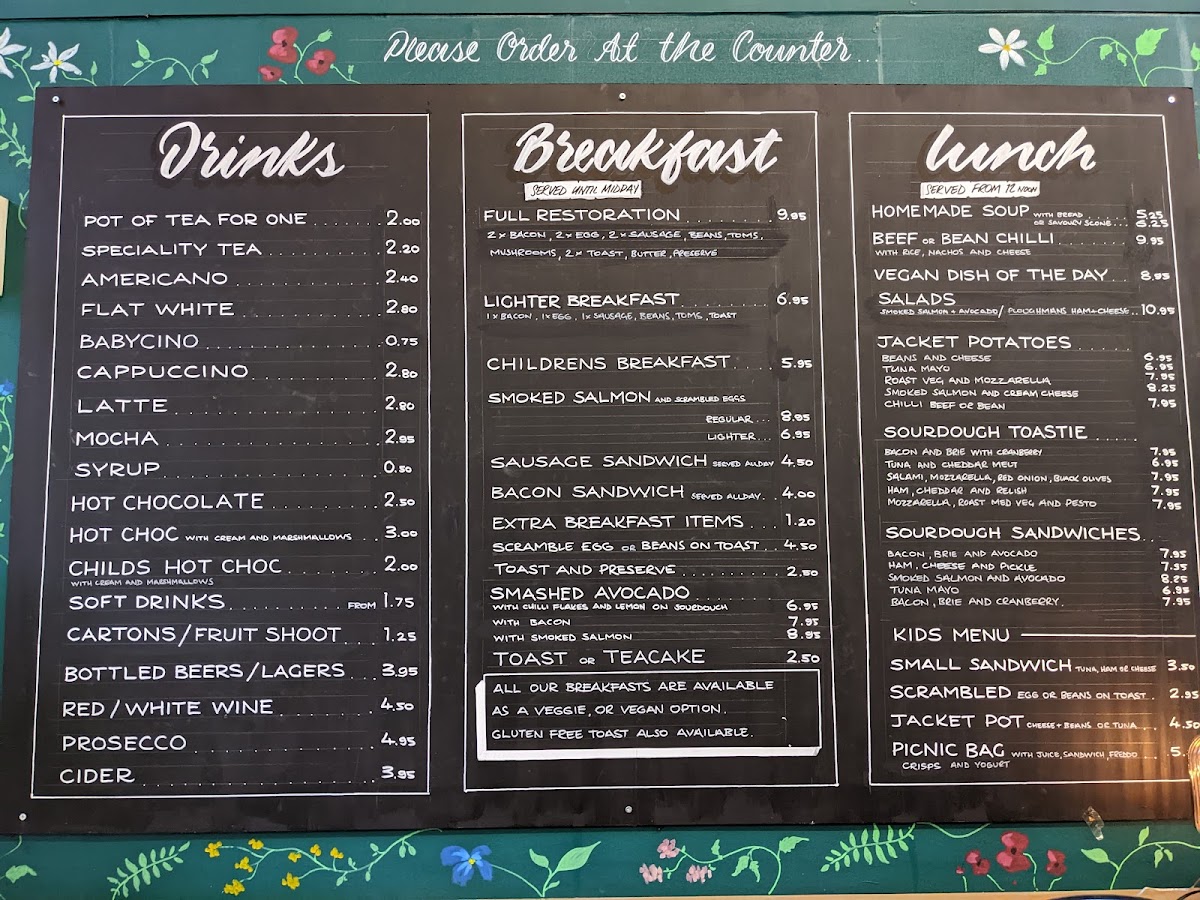 Please Order At the Counter...
Drinks
POT OF TEA FOR ONE 2.00
SPECIALITY TEA 2.20
AMERICANO 2.40
FLAT WHITE 2.80
BABYCINO 0.75
CAPPUCCINO 2.80
LATTE 2.80
MOCHA 2.95
SYRUP 0.50
HOT CHOCOLATE 2.50
HOT CHOC WITH CREAM AND MARSHMALLOWS 3.00
CHILDS HOT CHOC 2.00
WITH CREAM AND MARSHMALLOWS
SOFT DRINKS FROM 1.75
CARTONS/FRUIT SHOOT 1.25
BOTTLED BEERS/LAGERS 3.95
RED/WHITE WINE 4.50
PROSECCO 4.95
CIDER 3.95
Breakfast
SERVED UNTIL MIDDAY
FULL RESTORATION 9.95
2 x BACON, 2 x EGG, 2 x SAUSAGE, BEANS, TOMS,
MUSHROOMS, 2 x TOAST, BUTTER, PRESERVE
LIGHTER BREAKFAST 6.95
1 x BACON, 1 x EGG, 1 x SAUSAGE, BEANS, TOMS, TOAST
CHILDRENS BREAKFAST 5.95
SMOKED SALMON AND SCRAMBLED EGGS
REGULAR... 8.95
LIGHTER... 6.95
SAUSAGE SANDWICH SERVED ALLDAY 4.50
BACON SANDWICH SERVED ALLDAY. 4.00
EXTRA BREAKFAST ITEMS 1.20
SCRAMBLE EGG OR BEANS ON TOAST 4.50
TOAST AND PRESERVE 2.50
SMASHED AVOCADO
WITH CHILLI FLAKES AND LEMON ON SOURDOUGH 6.95
WITH BACON 7.95
WITH SMOKED SALMON 8.95
TOAST OR TEACAKE 2.50
ALL OUR BREAKFASTS ARE AVAILABLE
AS A VEGGIE, OR VEGAN OPTION.
GLUTEN FREE TOAST ALSO AVAILABLE.
lunch
SERVED FROM 12 NOON
HOMEMADE SOUP WITH BREAD 5.25
OR SAVOURY SCONE 6.25
BEEF OR BEAN CHILLI 9.95
WITH RICE, NACHOS AND CHEESE
VEGAN DISH OF THE DAY 8.95
SALADS
SMOKED SALMON + AVOCADO/ PLOUGHMANS HAM+CHEESE 10.95
JACKET POTATOES
BEANS AND CHEESE 6.95
TUNA MAYO 6.95
ROAST VEG AND MOZZARELLA 7.95
SMOKED SALMON AND CREAM CHEESE 8.25
CHILLI BEEF OR BEAN 7.95
SOURDOUGH TOASTIE
BACON AND BRIE WITH CRANBERRY 7.95
TUNA AND CHEDDAR MELT 6.95
SALAMI, MOZZARELLA, RED ONION, BLACK OLIVES 7.95
HAM, CHEDDAR AND RELISH 7.95
MOZZARELLA, ROAST MED VEG AND PESTO 7.95
SOURDOUGH SANDWICHES
BACON, BRIE AND AVOCADO 7.95
HAM, CHEESE AND PICKLE 7.95
SMOKED SALMON AND AVOCADO 8.25
TUNA MAYO 6.95
BACON, BRIE AND CRANBERRY. 7.95
KIDS MENU
SMALL SANDWICH TUNA, HAM OR CHEESE 3.50
SCRAMBLED EGG OR BEANS ON TOAST 2.95
JACKET POT CHEESE + BEANS OR TUNA 4.50
PICNIC BAG WITH JUICE, SANDWICH, FREDDO 5.
CRISPS AND YOGURT